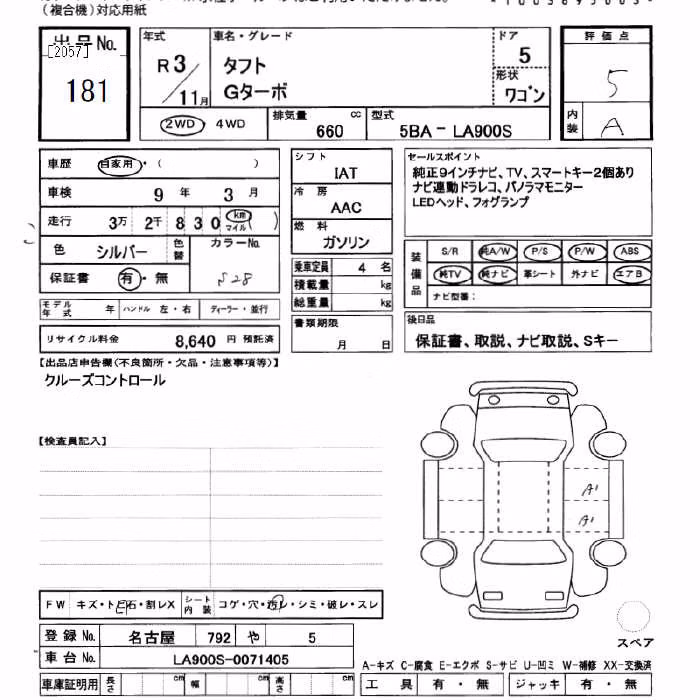 (複合機)対応用紙
出品No.
[2057]
181
年式
R3/11月
車名・グレード
タフト
Gターボ
ドア
5
形状
ワゴン
評価点
5
内装
A
2WD・4WD
排気量 660 cc
型式 5BA-LA900S
車歴 自家用・( )
車検 9年 3月
走行 3万 2千 8 3 0 km マイル ( )
色 シルバー 色替
カラーNo.
S28
保証書 有・無
モデル年式 年 ハンドル 左・右 ディーラー・並行
リサイクル料金 8,640 円 預託済
シフト
IAT
冷房
AAC
燃料
ガソリン
乗車定員 4 名
積載量 kg
総重量 kg
書類期限
月 日
セールスポイント
純正9インチナビ、TV、スマートキー2個あり
ナビ連動ドラレコ、パノラマモニター
LEDヘッド、フォグランプ
装備品
S/R 純A/W P/S P/W ABS
純TV 純ナビ 革シート 外ナビ エアB
ナビ型番:
後日品
保証書、取説、ナビ取説、Sキー
【出品店申告欄(不良箇所・欠品・注意事項等)】
クルーズコントロール
【検査員記入】
A1
A1
FW キズ・トビ石・割レX シート内装 コゲ・穴・汚レ・シミ・破レ・スレ
登録No. 名古屋 792 や 5
車台No. LA900S-0071405
車庫証明用 長さ cm 幅 cm 高さ cm
スペア
A-キズ C-腐食 E-エクボ S-サビ U-凹ミ W-補修 XX-交換済
工具 有・無 ジャッキ 有・無